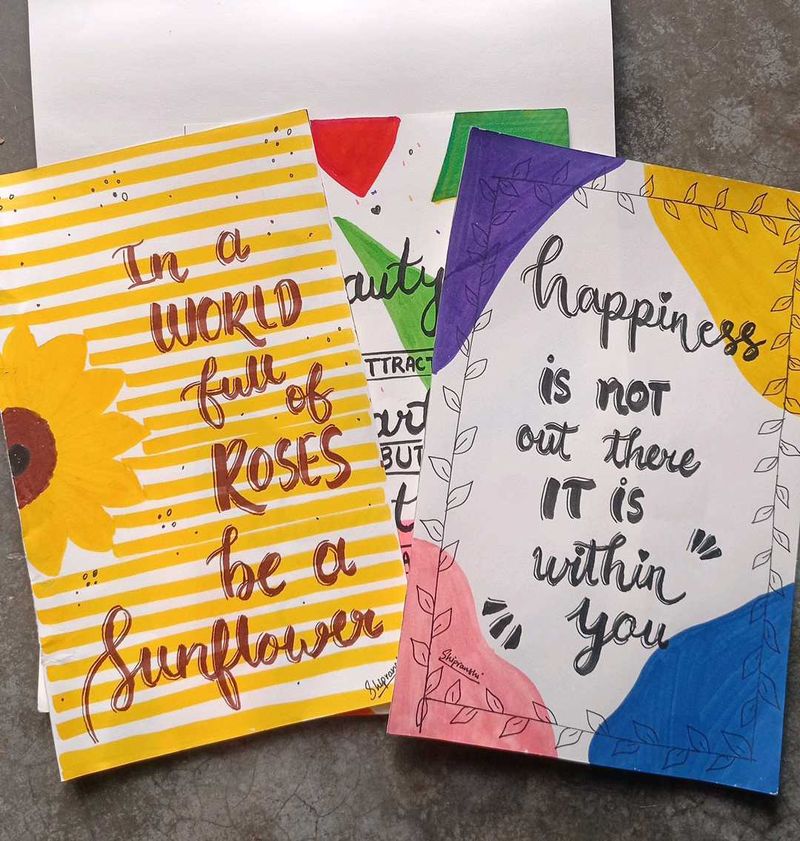 In a
WORLD
full of
ROSES
be a
Sunflower
Shipran
auty
TTRACT
art
BUT
happiness
is NOT
out there
IT is
within
you
Shipranshi